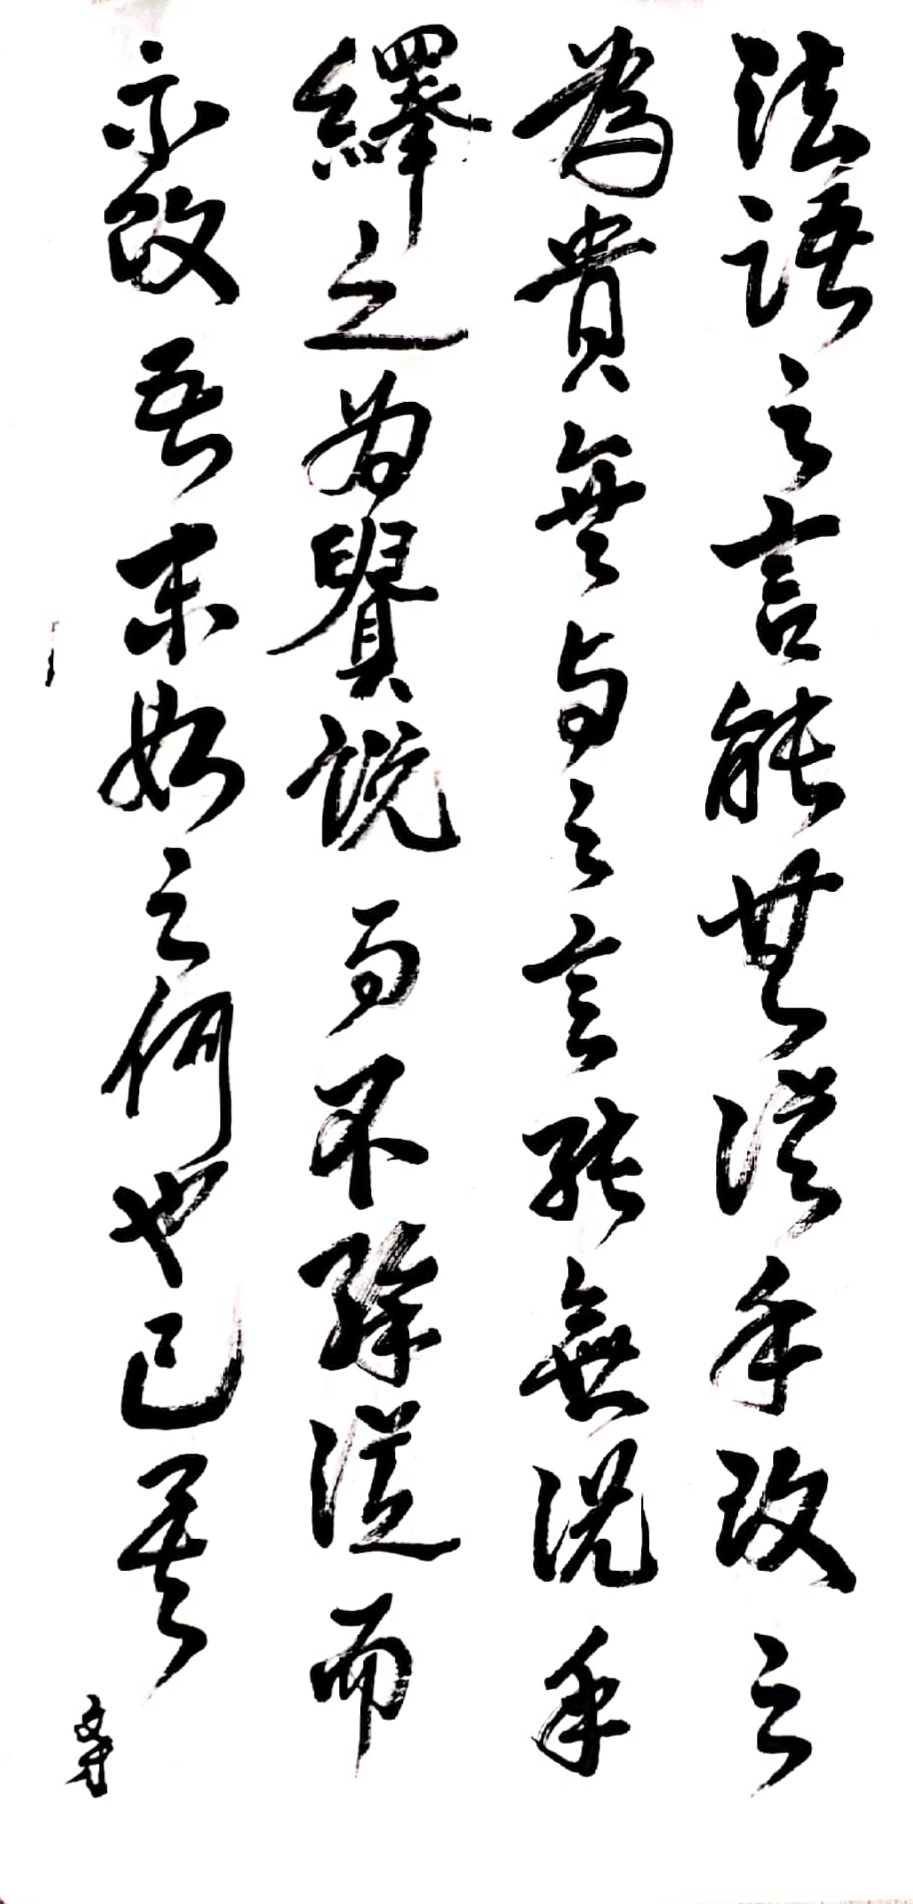 法語之言能無從乎改之
為貴巽与之言能無說乎
繹之為貴說而不繹從而
不改吾末如之何也已矣